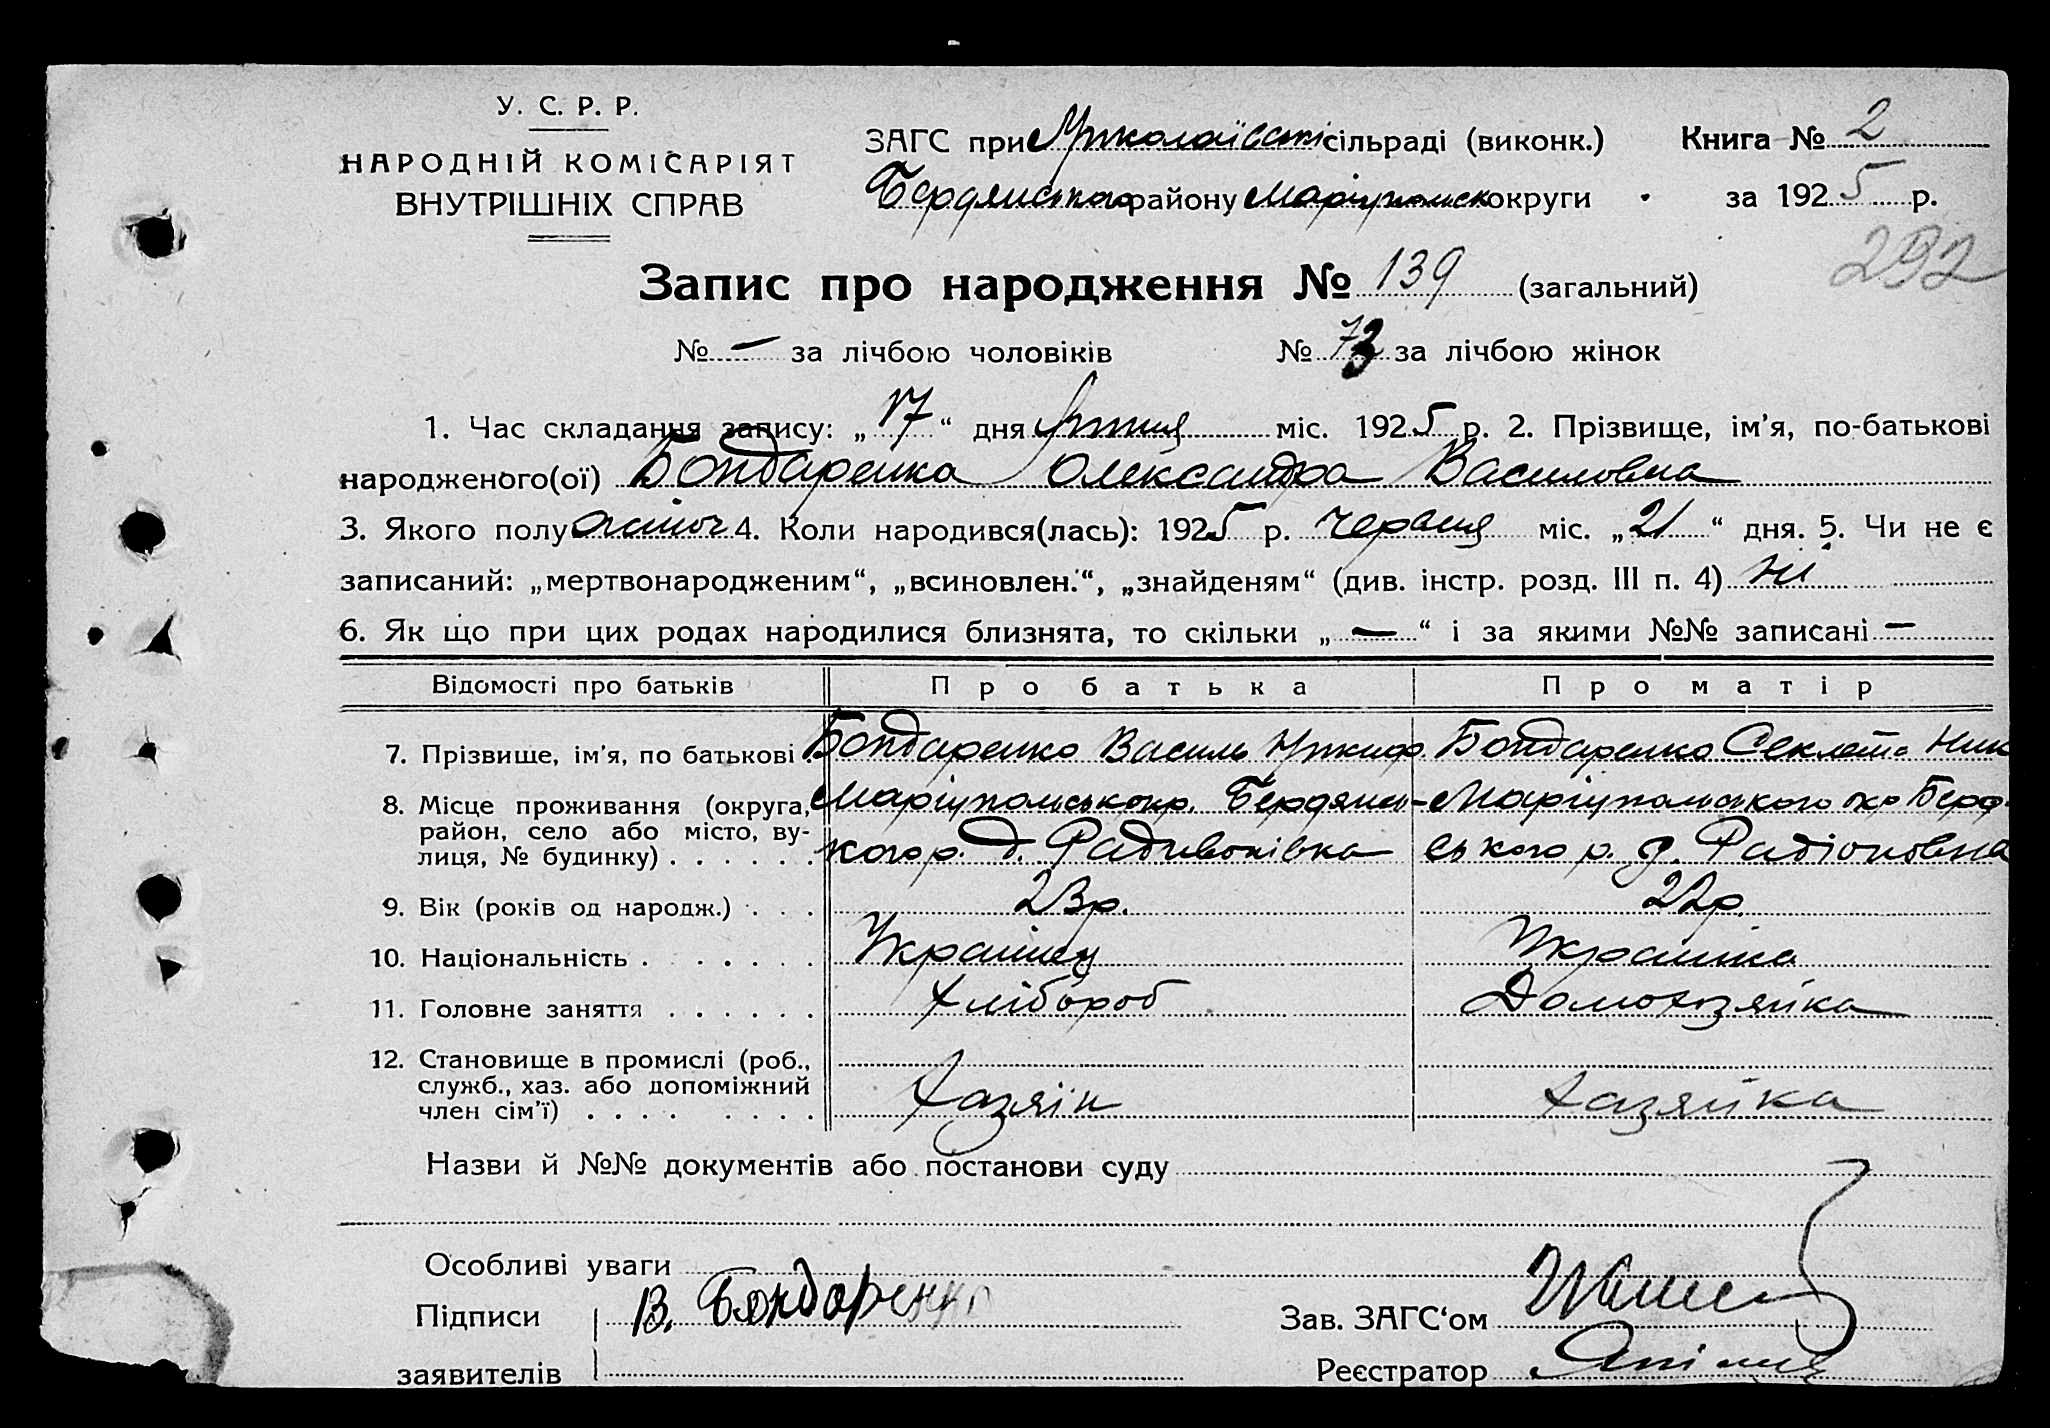 У. С. Р. Р.
НАРОДНІЙ КОМІСАРІЯТ
ВНУТРІШНІХ СПРАВ
ЗАГС при Миколаївські сільраді (виконк.) Книга № 2
Бердянського району Маріупольск округи за 1925 р.
292
Запис про народження № 139 (загальний)
№ — за лічбою чоловіків № 73 за лічбою жінок
1. Час складання запису: „17“ дня Липця міс. 1925 р. 2. Прізвище, ім'я, по-батькові
народженого(ої) Бондаренко Олександра Василовна
3. Якого полу жіноч 4. Коли народився(лась): 1925 р. червня міс. „21“ дня. 5. Чи не є
записаний: „мертвонародженим“, „всиновлен.“, „знайденям“ (див. інстр. розд. III п. 4) ні
6. Як що при цих родах народилися близнята, то скільки „—“ і за якими №№ записані —
Відомості про батьків Про батька Про матір
7. Прізвище, ім'я, по батькові . Бондаренко Василь Бондаренко
8. Місце проживання (округа, Маріупольськ. окр. Бердянсь- Маріупольського окр Берд.
район, село або місто, ву-
лиця, № будинку) . . . . . . кого р. д. Радивонівка ського р. д. Радіоновка
9. Вік (років од народж.) . . . 23р. 22р.
10. Національність . . . . . . . Українец Українка
11. Головне заняття . . . . . . Хлібороб Домохозяйка
12. Становище в промислі (роб.,
служб., хаз. або допоміжний
член сім'ї) . . . . . . . . Хазяїн Хазяйка
Назви й №№ документів або постанови суду
Особливі уваги
Підписи В. Бондаренко Зав. ЗАГС'ом
заявителів Реєстратор